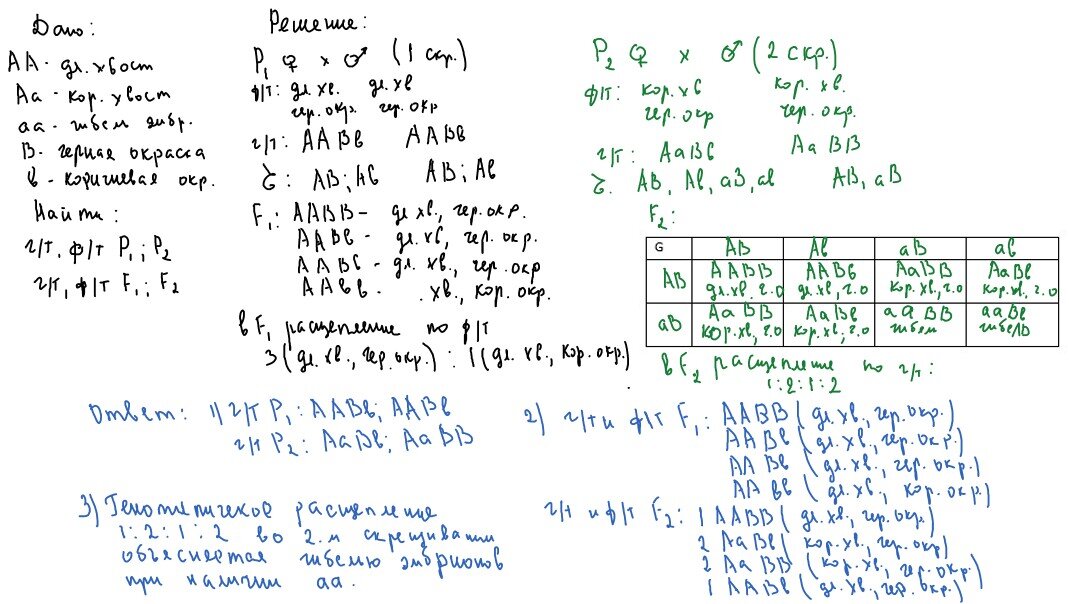 Дано:
АА - дл. хвост
Аа - кор. хвост
аа - гибель эмбр.
В - черная окраска
в - коричневая окр.
Найти:
г/т, ф/т P₁; P₂
г/т, ф/т F₁; F₂
Решение:
P₁ ♀ × ♂ (1 скр.)
ф/т: дл. хв. дл. хв
чер. окр. чер. окр
г/т: ААВв ААВв
G: АВ; Ав АВ; Ав
F₁: ААВВ - дл. хв., чер. окр.
ААВв - дл. хв, чер. окр.
ААВв - дл. хв., чер. окр
ААвв - хв., кор. окр.
в F₁ расщепление по ф/т
3 (дл. хв., чер. окр.) : 1 (дл. хв., кор. окр.)
P₂ ♀ × ♂ (2 скр.)
ф/т: кор. хв кор. хв.
чер. окр чер. окр.
г/т: АаВв АаВВ
G. АВ, Ав, аВ, ав АВ, аВ
F₂:
G АВ Ав аВ ав
АВ ААВВ ААВв АаВВ АаВв
дл. хв, ч.о дл. хв, ч.о кор. хв, ч.о кор. хв, ч.о
аВ АаВВ АаВв ааВВ ааВв
кор. хв, ч.о кор. хв, ч.о гибель гибель
в F₂ расщепление по г/т:
1:2:1:2
Ответ: 1) г/т P₁: ААВв; ААВв
г/т P₂: АаВв; АаВВ
2) г/т и ф/т F₁: ААВВ (дл. хв., чер. окр.)
ААВв (дл. хв., чер. окр.)
ААВв (дл. хв., чер. окр.)
ААвв (дл. хв., кор. окр.)
3) Генотипическое расщепление
1:2:1:2 во 2-м скрещивании
объясняется гибелью эмбрионов
при наличии аа.
г/т и ф/т F₂: 1 ААВВ (дл. хв., чер. окр.)
2 АаВв (кор. хв., чер. окр)
2 АаВВ (кор. хв., чер. окр.)
1 ААВв (дл. хв., чер. окр.)